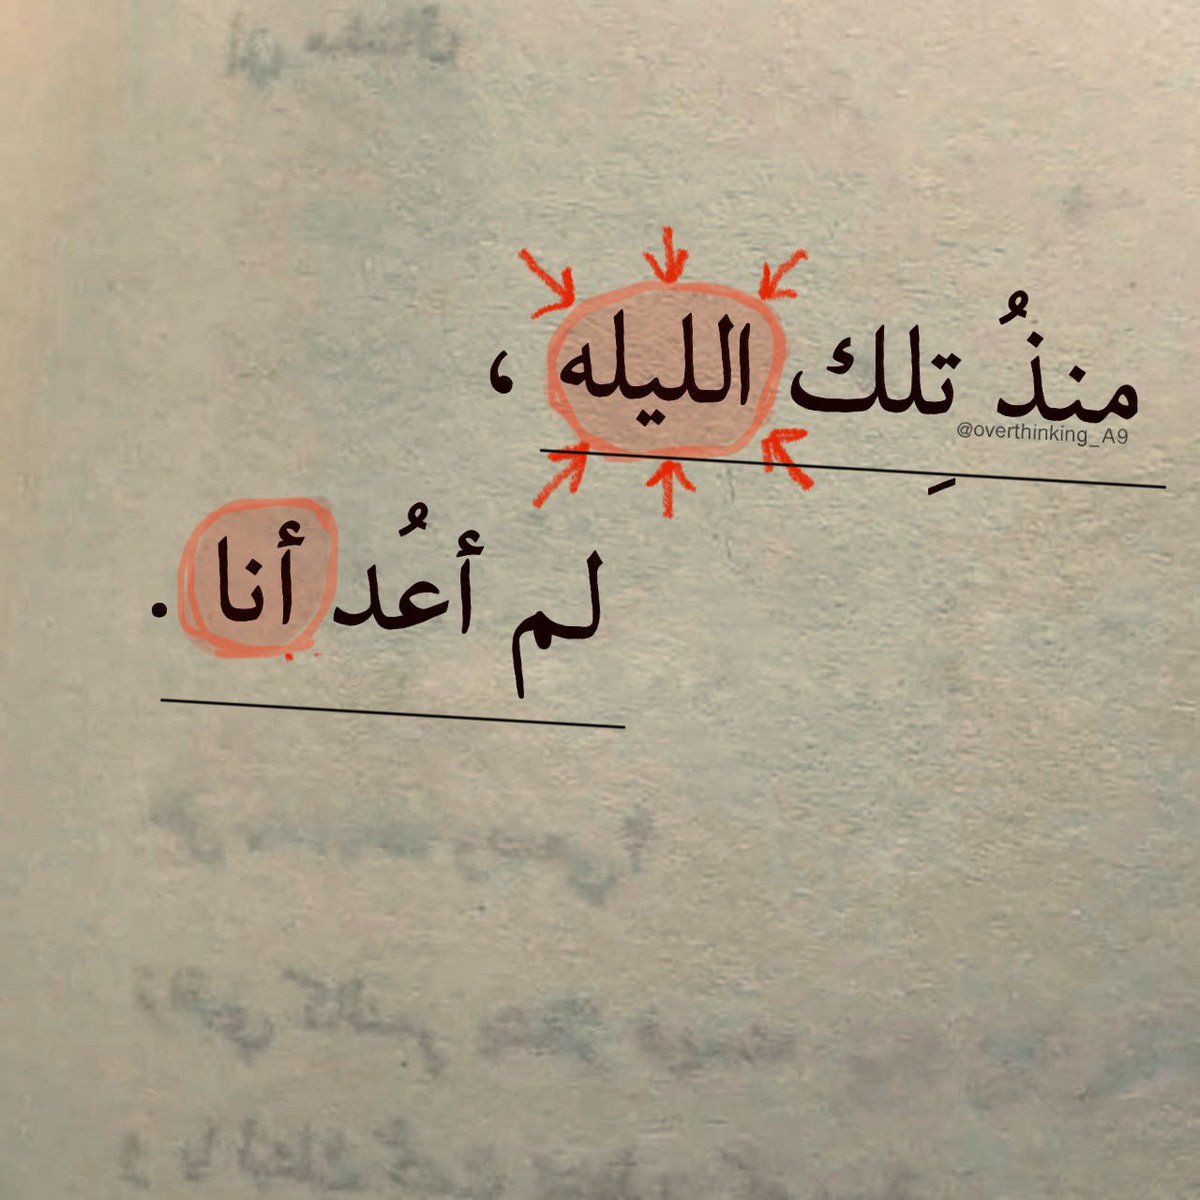 منذُ تِلك الليله ،
@overthinking_A9
لم أعُد أنا .